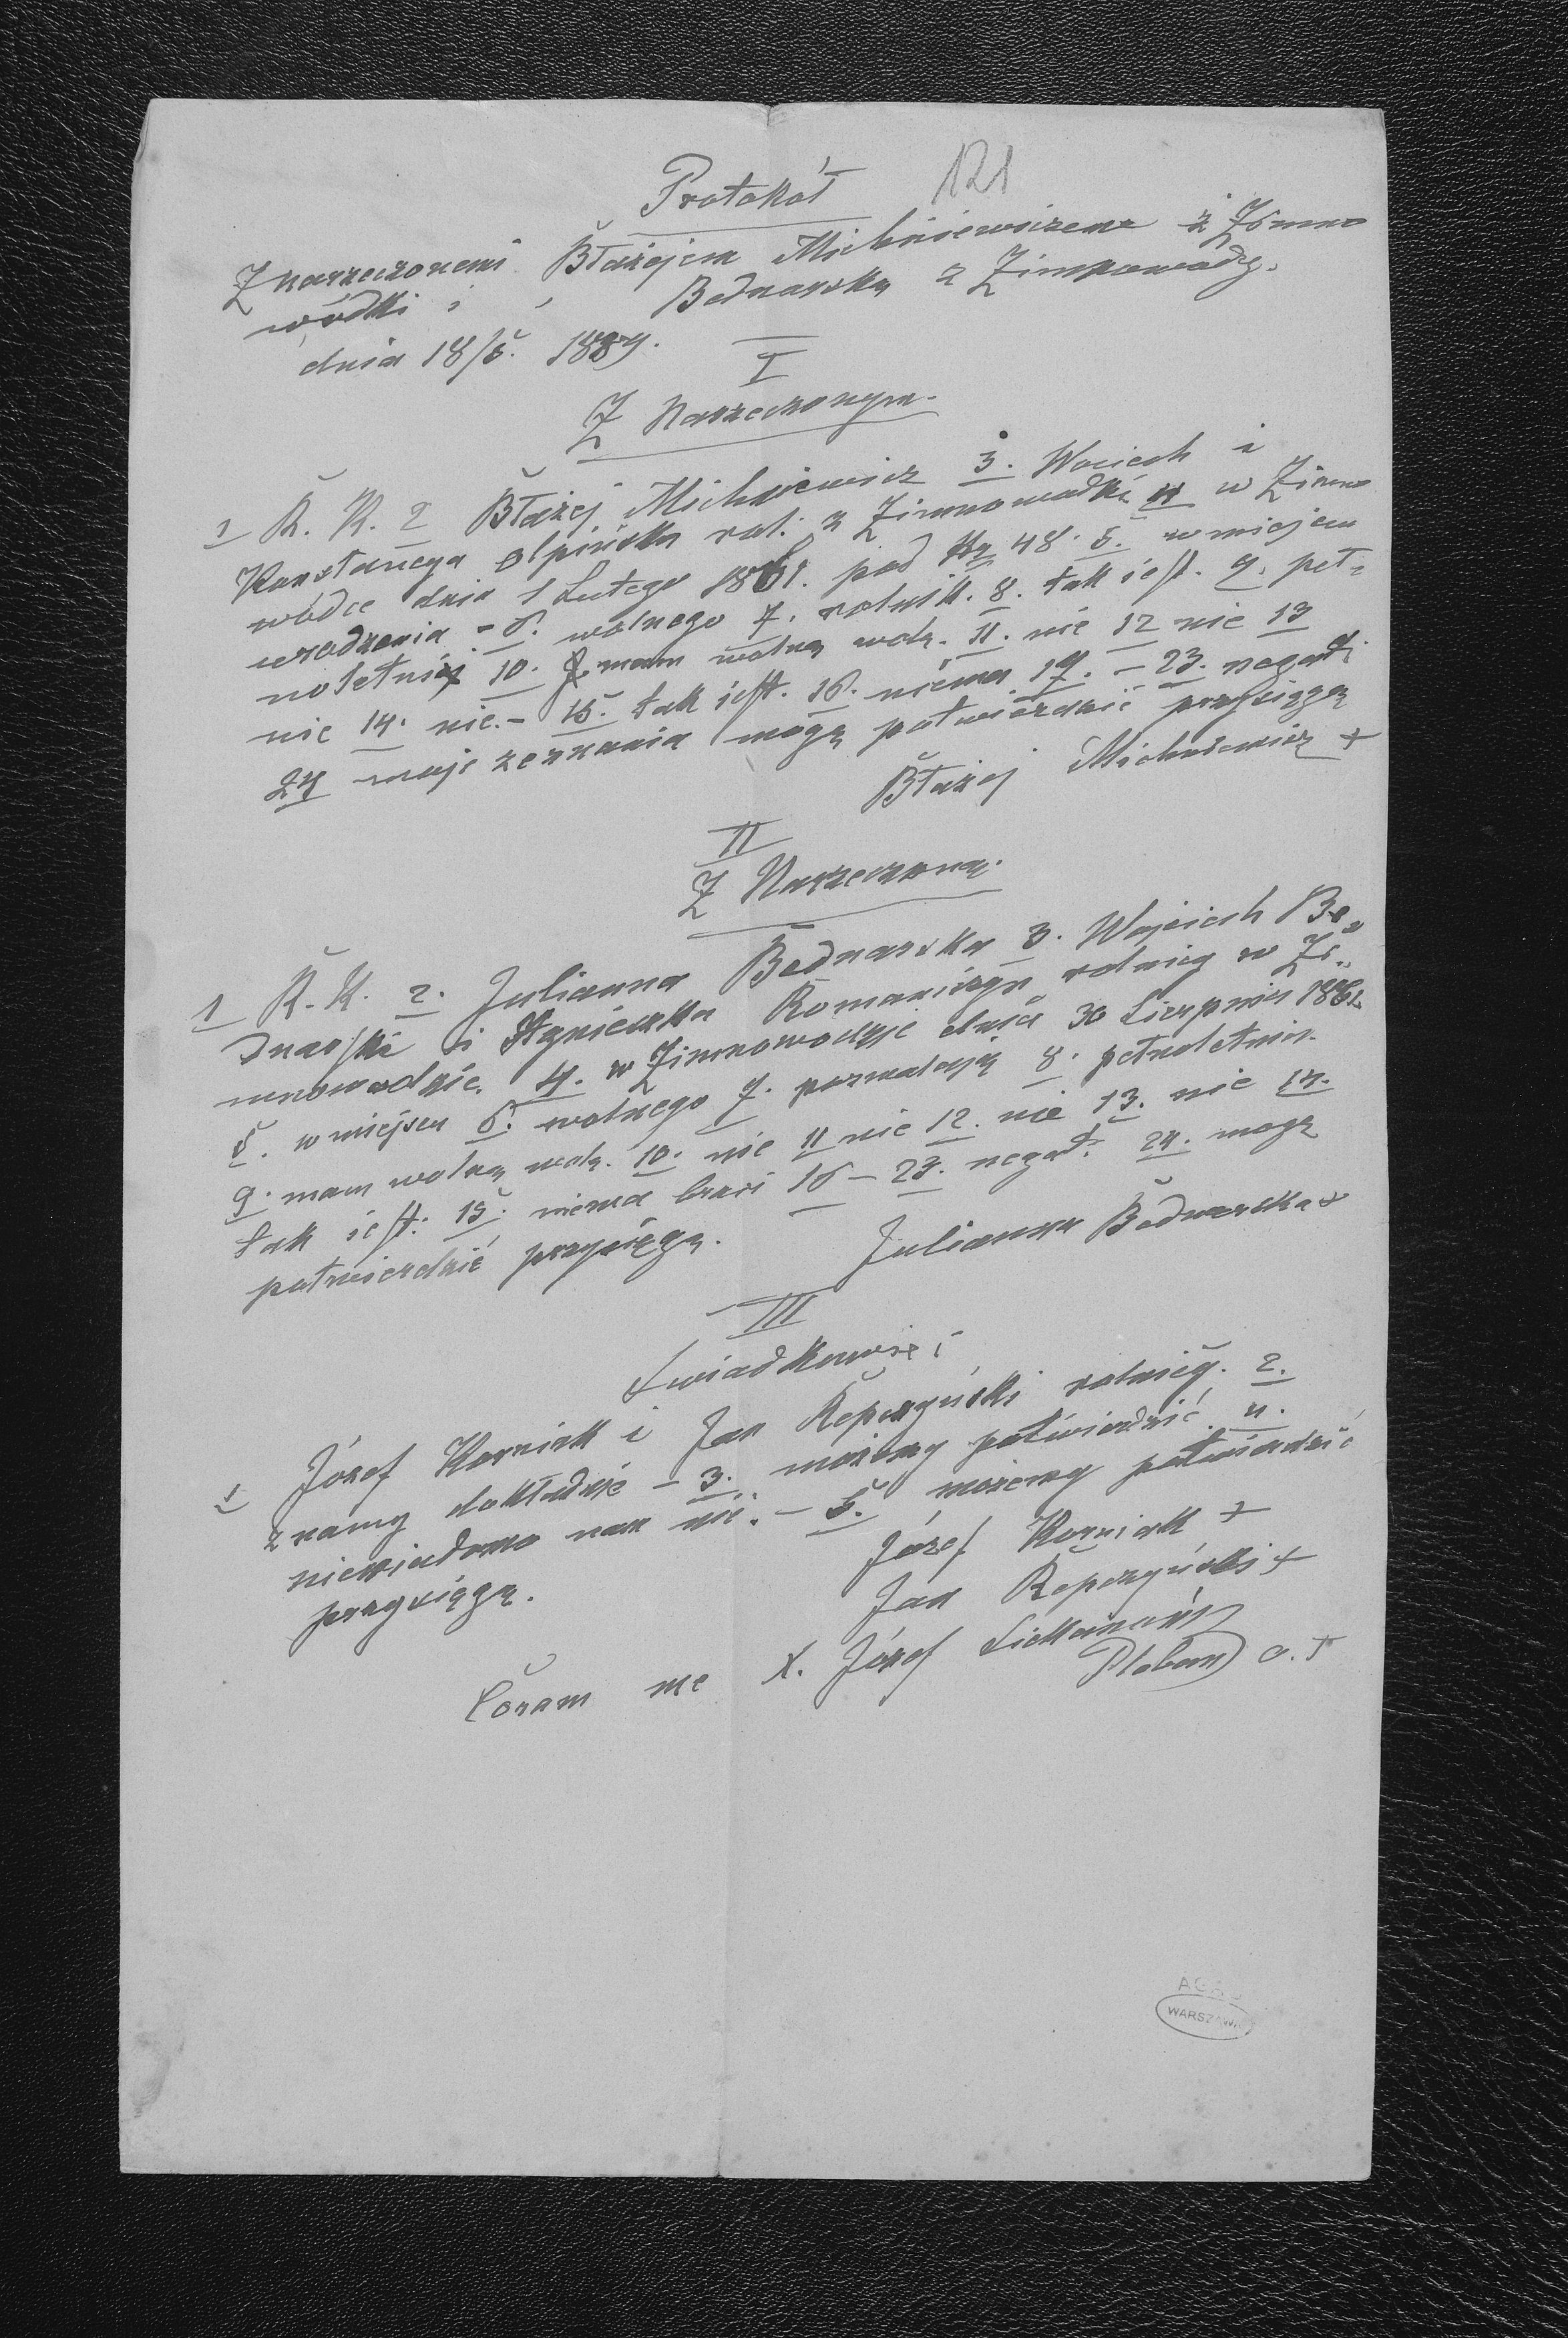 Protokół 121
Z narzeczonemi Błażejem Michniewiczem z Zimno
wódki i Bednarską z Zimnowódy.
dnia 18/5. 1889.
I
Z Narzeczonym.
1 R. K. 2 Błażej Michniewicz 3. Wociech i
Konstancya rol. z Zimnowodki 4 w Zimno
wódce dnia 1 Lutego 1861. pod 48. 5. w miejscu
urodzenia - 6. wolnego 7. rolnik. 8. tak jest. 9. peł-
noletni 10. mam wolną wolę. 11. nie 12 nie 13
nie 14. nie. - 15. tak jest. 16. niema 17. - 23. negat.
24 moje zeznania mogę potwierdzić przysięgą
Błażej Michniewicz +
II
Z Narzeczoną.
1 R. K. 2. Julianna Bednarska 3. Wojciech Be-
dnarski i Agnieszka Romaniszyn rolnicy w Zi-
mnowodzie. 4. w Zimnowodzie dnia 30 Sierpnia 1861
5. w miejscu 6. wolnego 7. pozwalają 8. pełnoletnia.
9. mam wolną wolę. 10. nie 11 nie 12. nie 13. nie 14.
tak jest. 15. niema braci 16 - 23. negat. 24. mogę
potwierdzić przysięgą. Julianna Bednarska +
III
Swiadkowie:
1 Józef Korniak i Jan Repczyński rolnicy. 2.
znamy dokładnie - 3. możemy potwierdzić 4.
niewiadomo nam nic. - 5. możemy potwierdzić
przysięgą. Józef Korniak +
Jan Repczyński +
Coram me X. Józef
Pleban
WARSZAWA